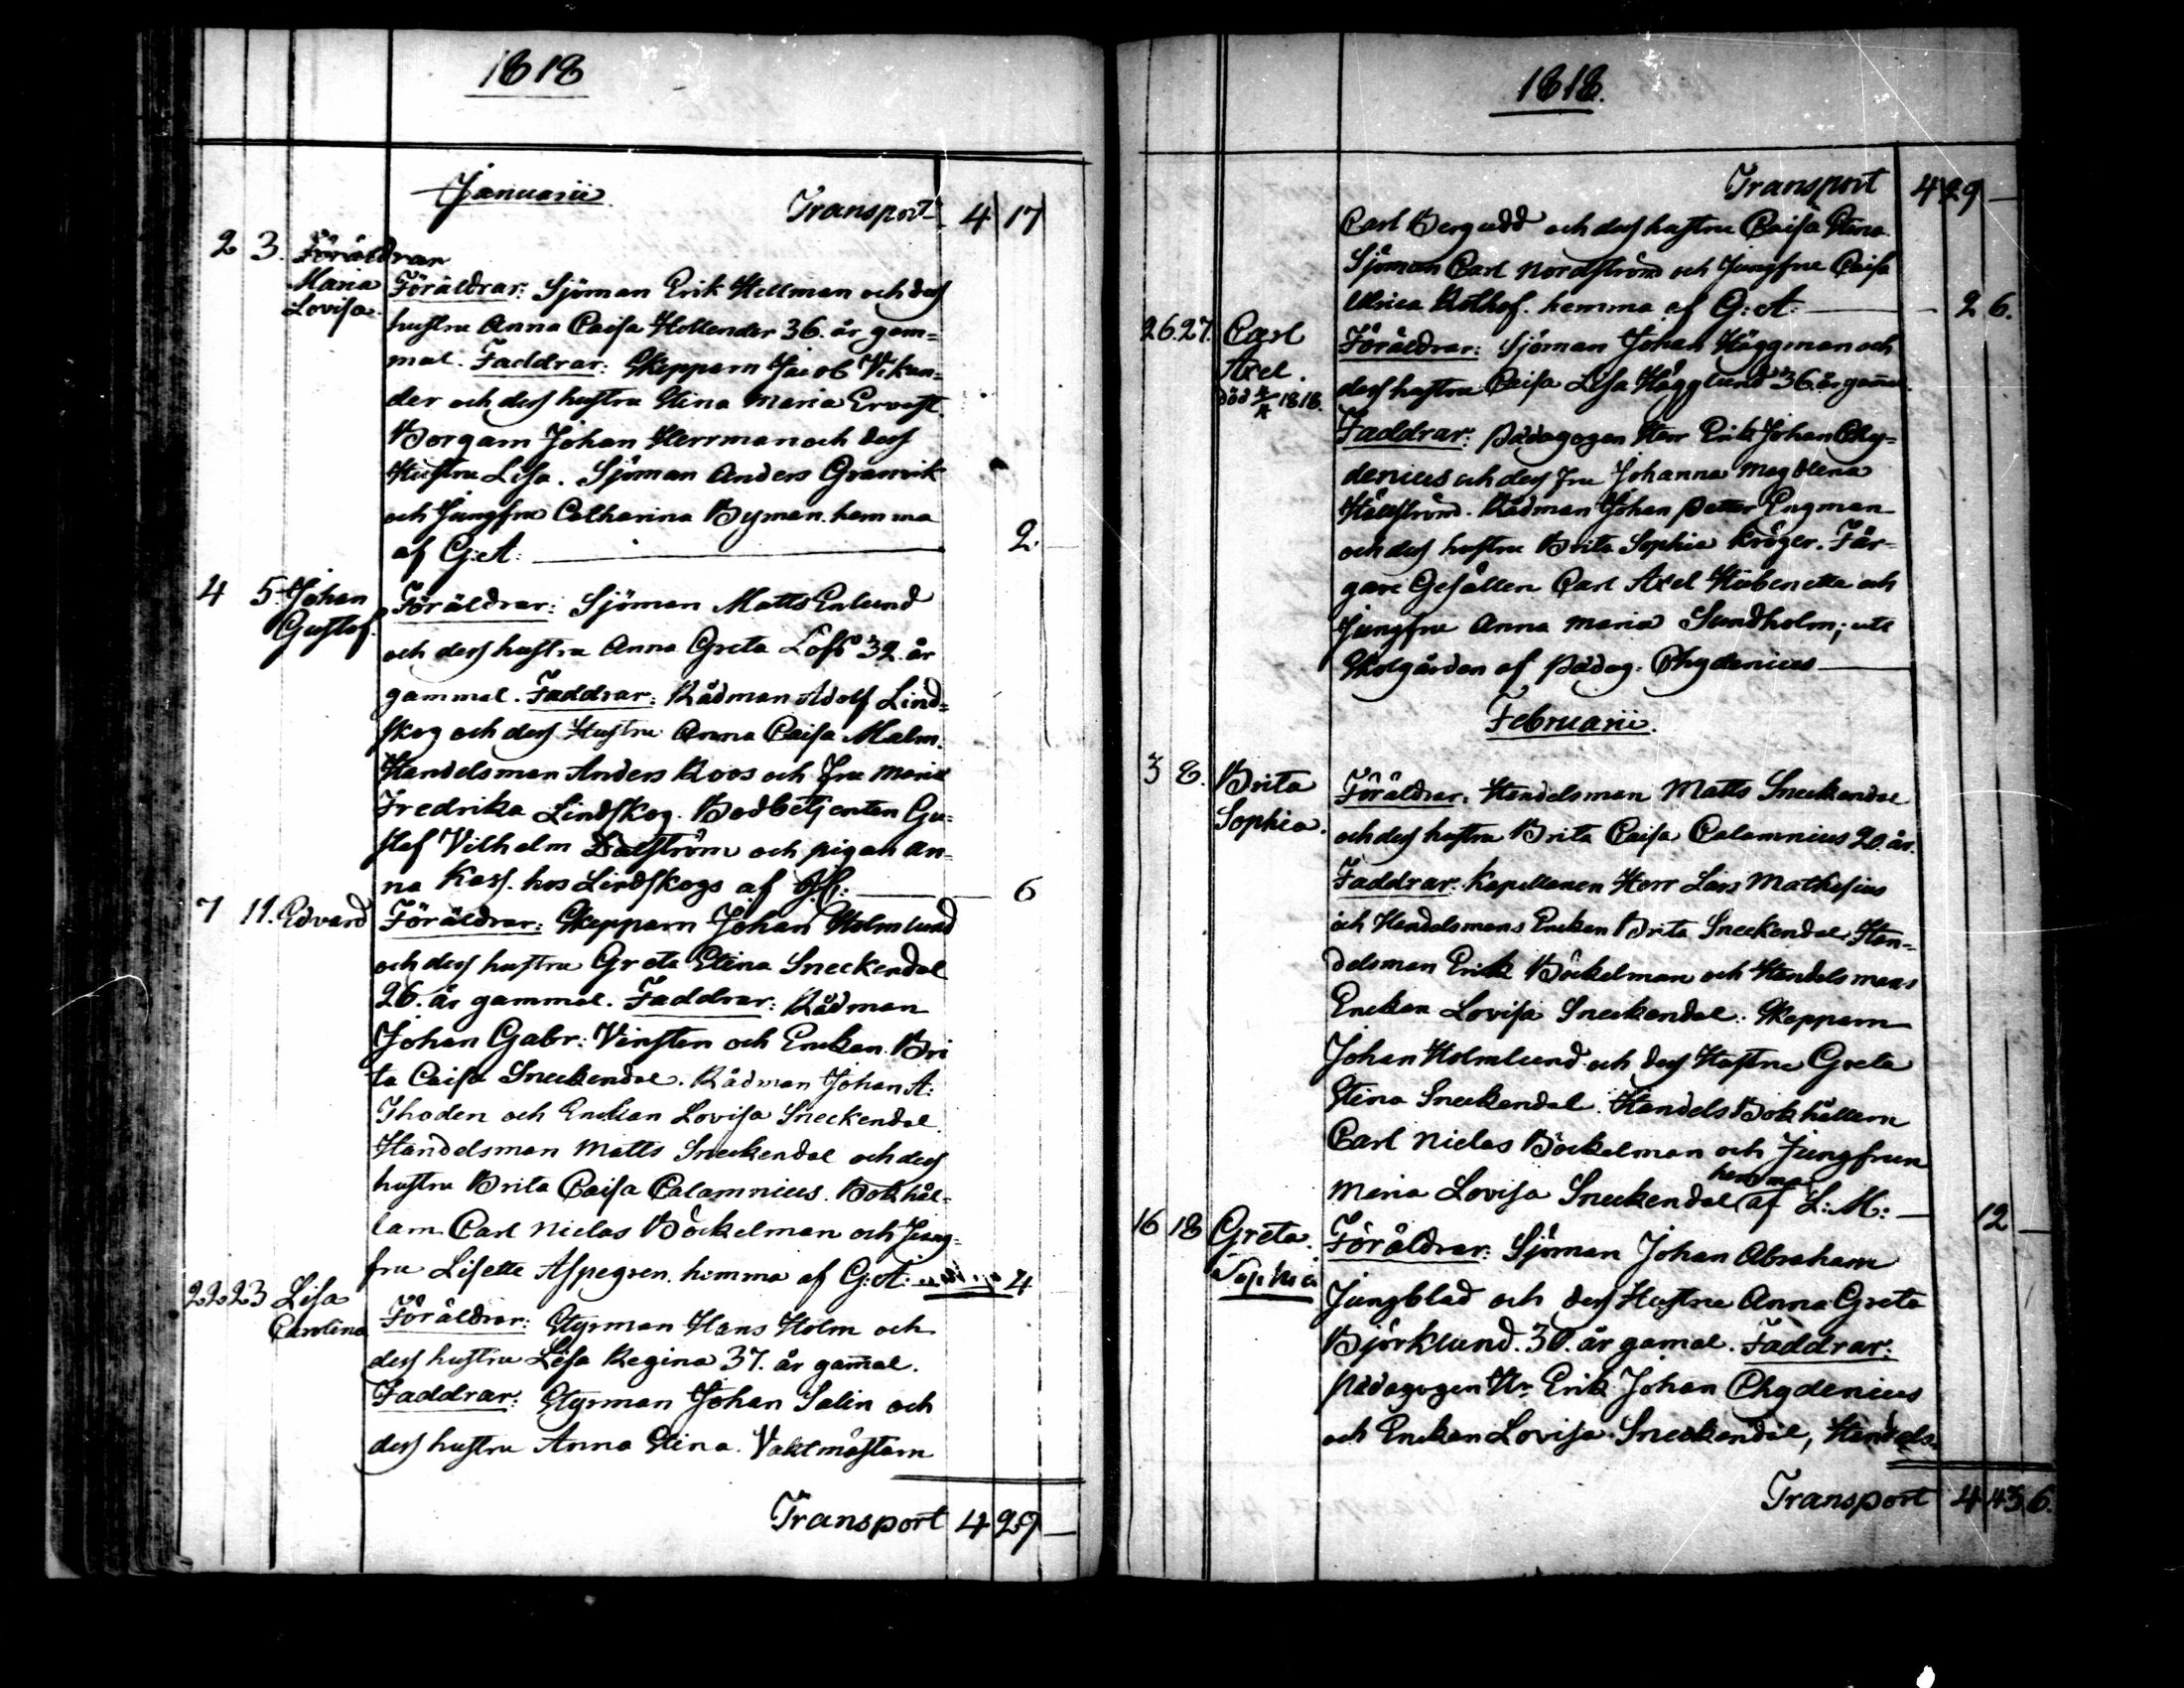 1818
Januarii
Transport 4 17
2 3. Föräldrar
Maria Lovisa. Föräldrar: Sjöman Erik Hellman och dess
hustru Anna Caisa Hollender 36. år gam=
mal. Faddrar: Skepparn Jacob Vikan=
der och dess hustru Stina Maria
Borgarn Johan Herrman och dess
Hustru Lisa. Sjöman Anders Granvik
och Jungfru Catharina Byman. hemma
af G:A: 2.
4 5. Johan Gustaf. Föräldrar: Sjöman Matts Enlund
och dess hustru Anna Greta Löf 32. år
gammal. Faddrar: Rådman Adolf Lind=
skog och dess Hustru Anna Caisa Malm.
Handelsman Anders Roos och fru Maria
Fredrika Lindskog. Bodbetjenten Gu=
staf Vilhelm Dalström och pigan An=
na Kass. hos Lindskogs af 6
7 11. Edvard Föräldrar: Skepparn Johan Holmlund
och dess hustru Greta Stina Sneckendal
26. år gammal. Faddrar: Rådman
Johan Gabr: Vinsten och Enckan Bri
ta Caisa Sneckendal. Rådman Johan A:
Thoden och Enckan Lovisa Sneckendal.
Handelsman Matts Sneckendal och dess
hustru Brita Caisa Calamnius. Bokhål=
larn Carl Niclas Böckelman och Jung=
fru Lisette Aspegren. hemma af G:A: 4
22 23 Lisa Carolina Föräldrar: Styrman Hans Holm och
dess hustru Lisa Regina 37. år gam̄al.
Faddrar: Styrman Johan Salin och
dess hustru Anna Stina. Vaktmästarn
Transport 4 29 —
1818.
Transport 4 29 —
Carl Bergudd och dess hustru Caisa Stina
Sjöman Carl Nordström och Jungfru Caisa
Ulrica Rolhof. hemma af G:A: 2 6.
26. 27. Carl Axel. Föräldrar: Sjöman Johan Häggman och
död 1818. dess hustru Caisa Lisa Hägglund 36. år gam̄al.
Faddrar: Pädagogen Herr Erik Johan Chy=
denius och dess fru Johanna Magdlena
Hällström. Rådman Johan Petter Engman
och dess hustru Brita Sophia Kröger. Fär=
gare Gesällen Carl Axel Hubenette och
Jungfru Anna Maria Sundholm; uti
Skolgården af Pädag: Chydenius
Februarii.
3 8. Brita Sophia. Föräldrar: Handelsman Matts Sneckendal
och dess hustru Brita Caisa Calamnius 20. år.
Faddrar: Kapellanen Herr Lars Mathesius
och Handelsmans Enckan Brita Sneckendal. Han=
delsman Erik Böckelman och Handelsmans
Enckan Lovisa Sneckendal. Skepparn
Johan Holmlund och dess Hustru Greta
Stina Sneckendal. Handels Bokhållern
Carl Niclas Böckelman och Jungfrun
Maria Lovisa Sneckendal hemma af L:M: 12 —
16 18 Greta Sophia Föräldrar: Sjöman Johan Abraham
Jungblad och dess Hustru Anna Greta
Björklund. 30. år gamal. Faddrar:
Pädagogen Hr Erik Johan Chydenius
och Enckan Lovisa Sneckendal, Handels=
Transport 4 43 6.